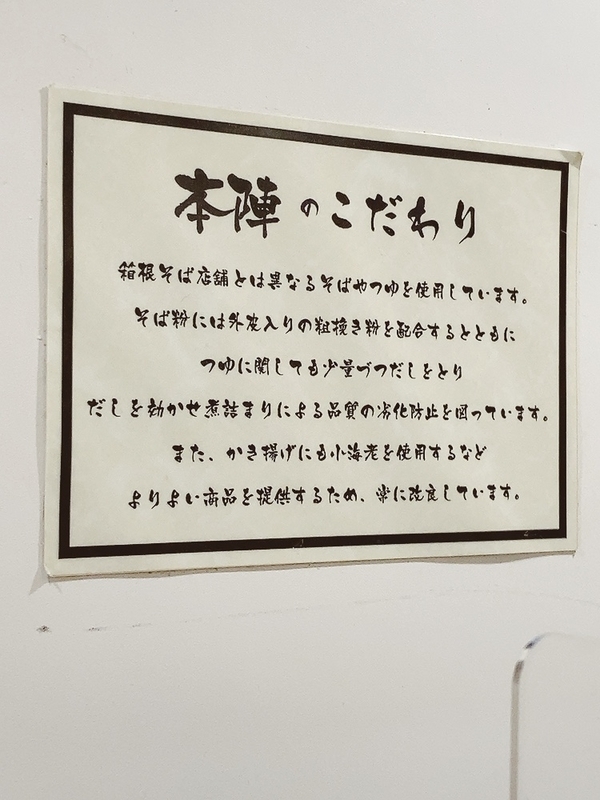 本陣のこだわり
箱根そば店舗とは異なるそばやつゆを使用しています。
そば粉には外皮入りの粗挽き粉を配合するとともに
つゆに関しても少量づつだしをとり
だしを効かせ煮詰まりによる品質の劣化防止を図っています。
また、かき揚げにも小海老を使用するなど
よりよい商品を提供するため、常に改良しています。